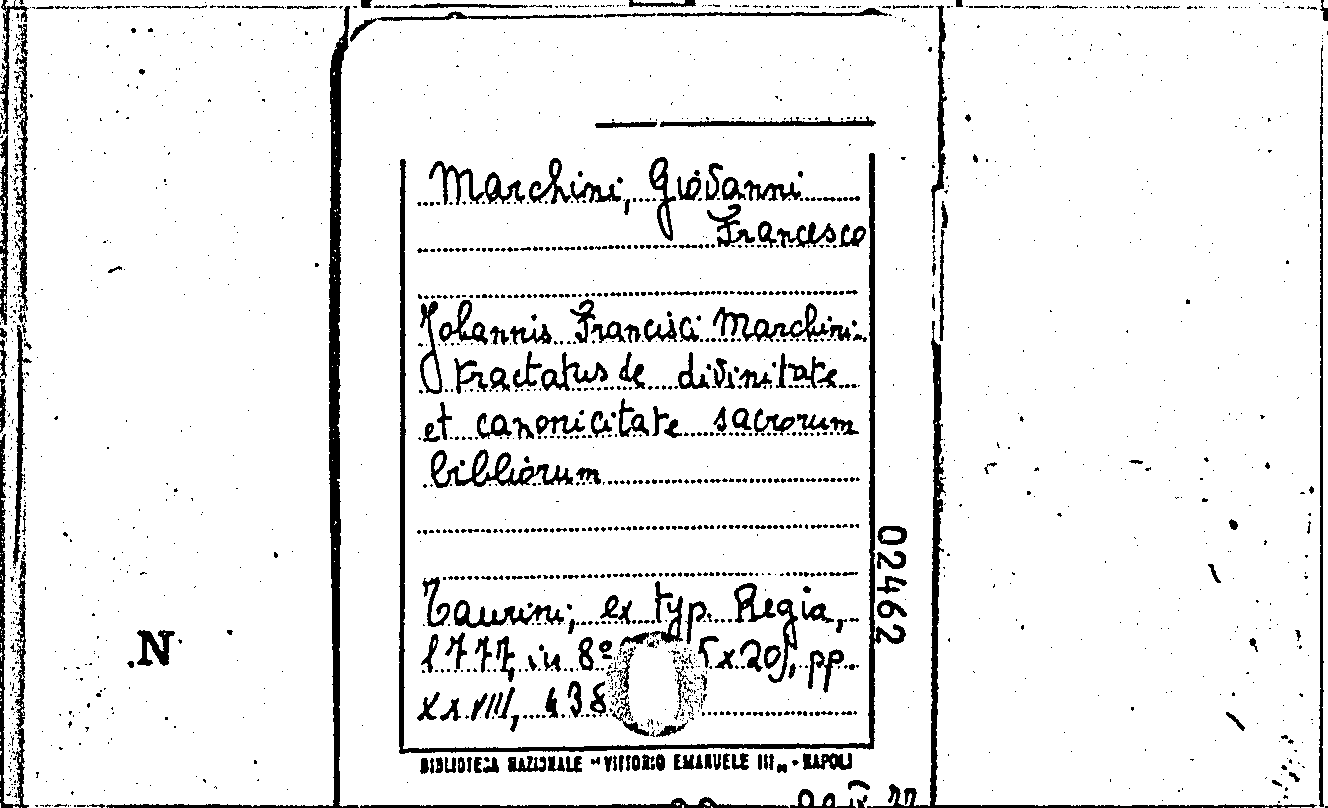 Marchini, Giovanni
Francesco
Johannis Francisci Marchini
tractatus de divinitate
et canonicitate sacrorum
bibliorum
Taurini, ex typ. Regia,
1777, in 8º 5x20), pp.
XXVIII, 438
02462
.N
BIBLIOTECA NAZIONALE "VITTORIO EMANUELE III" - NAPOLI